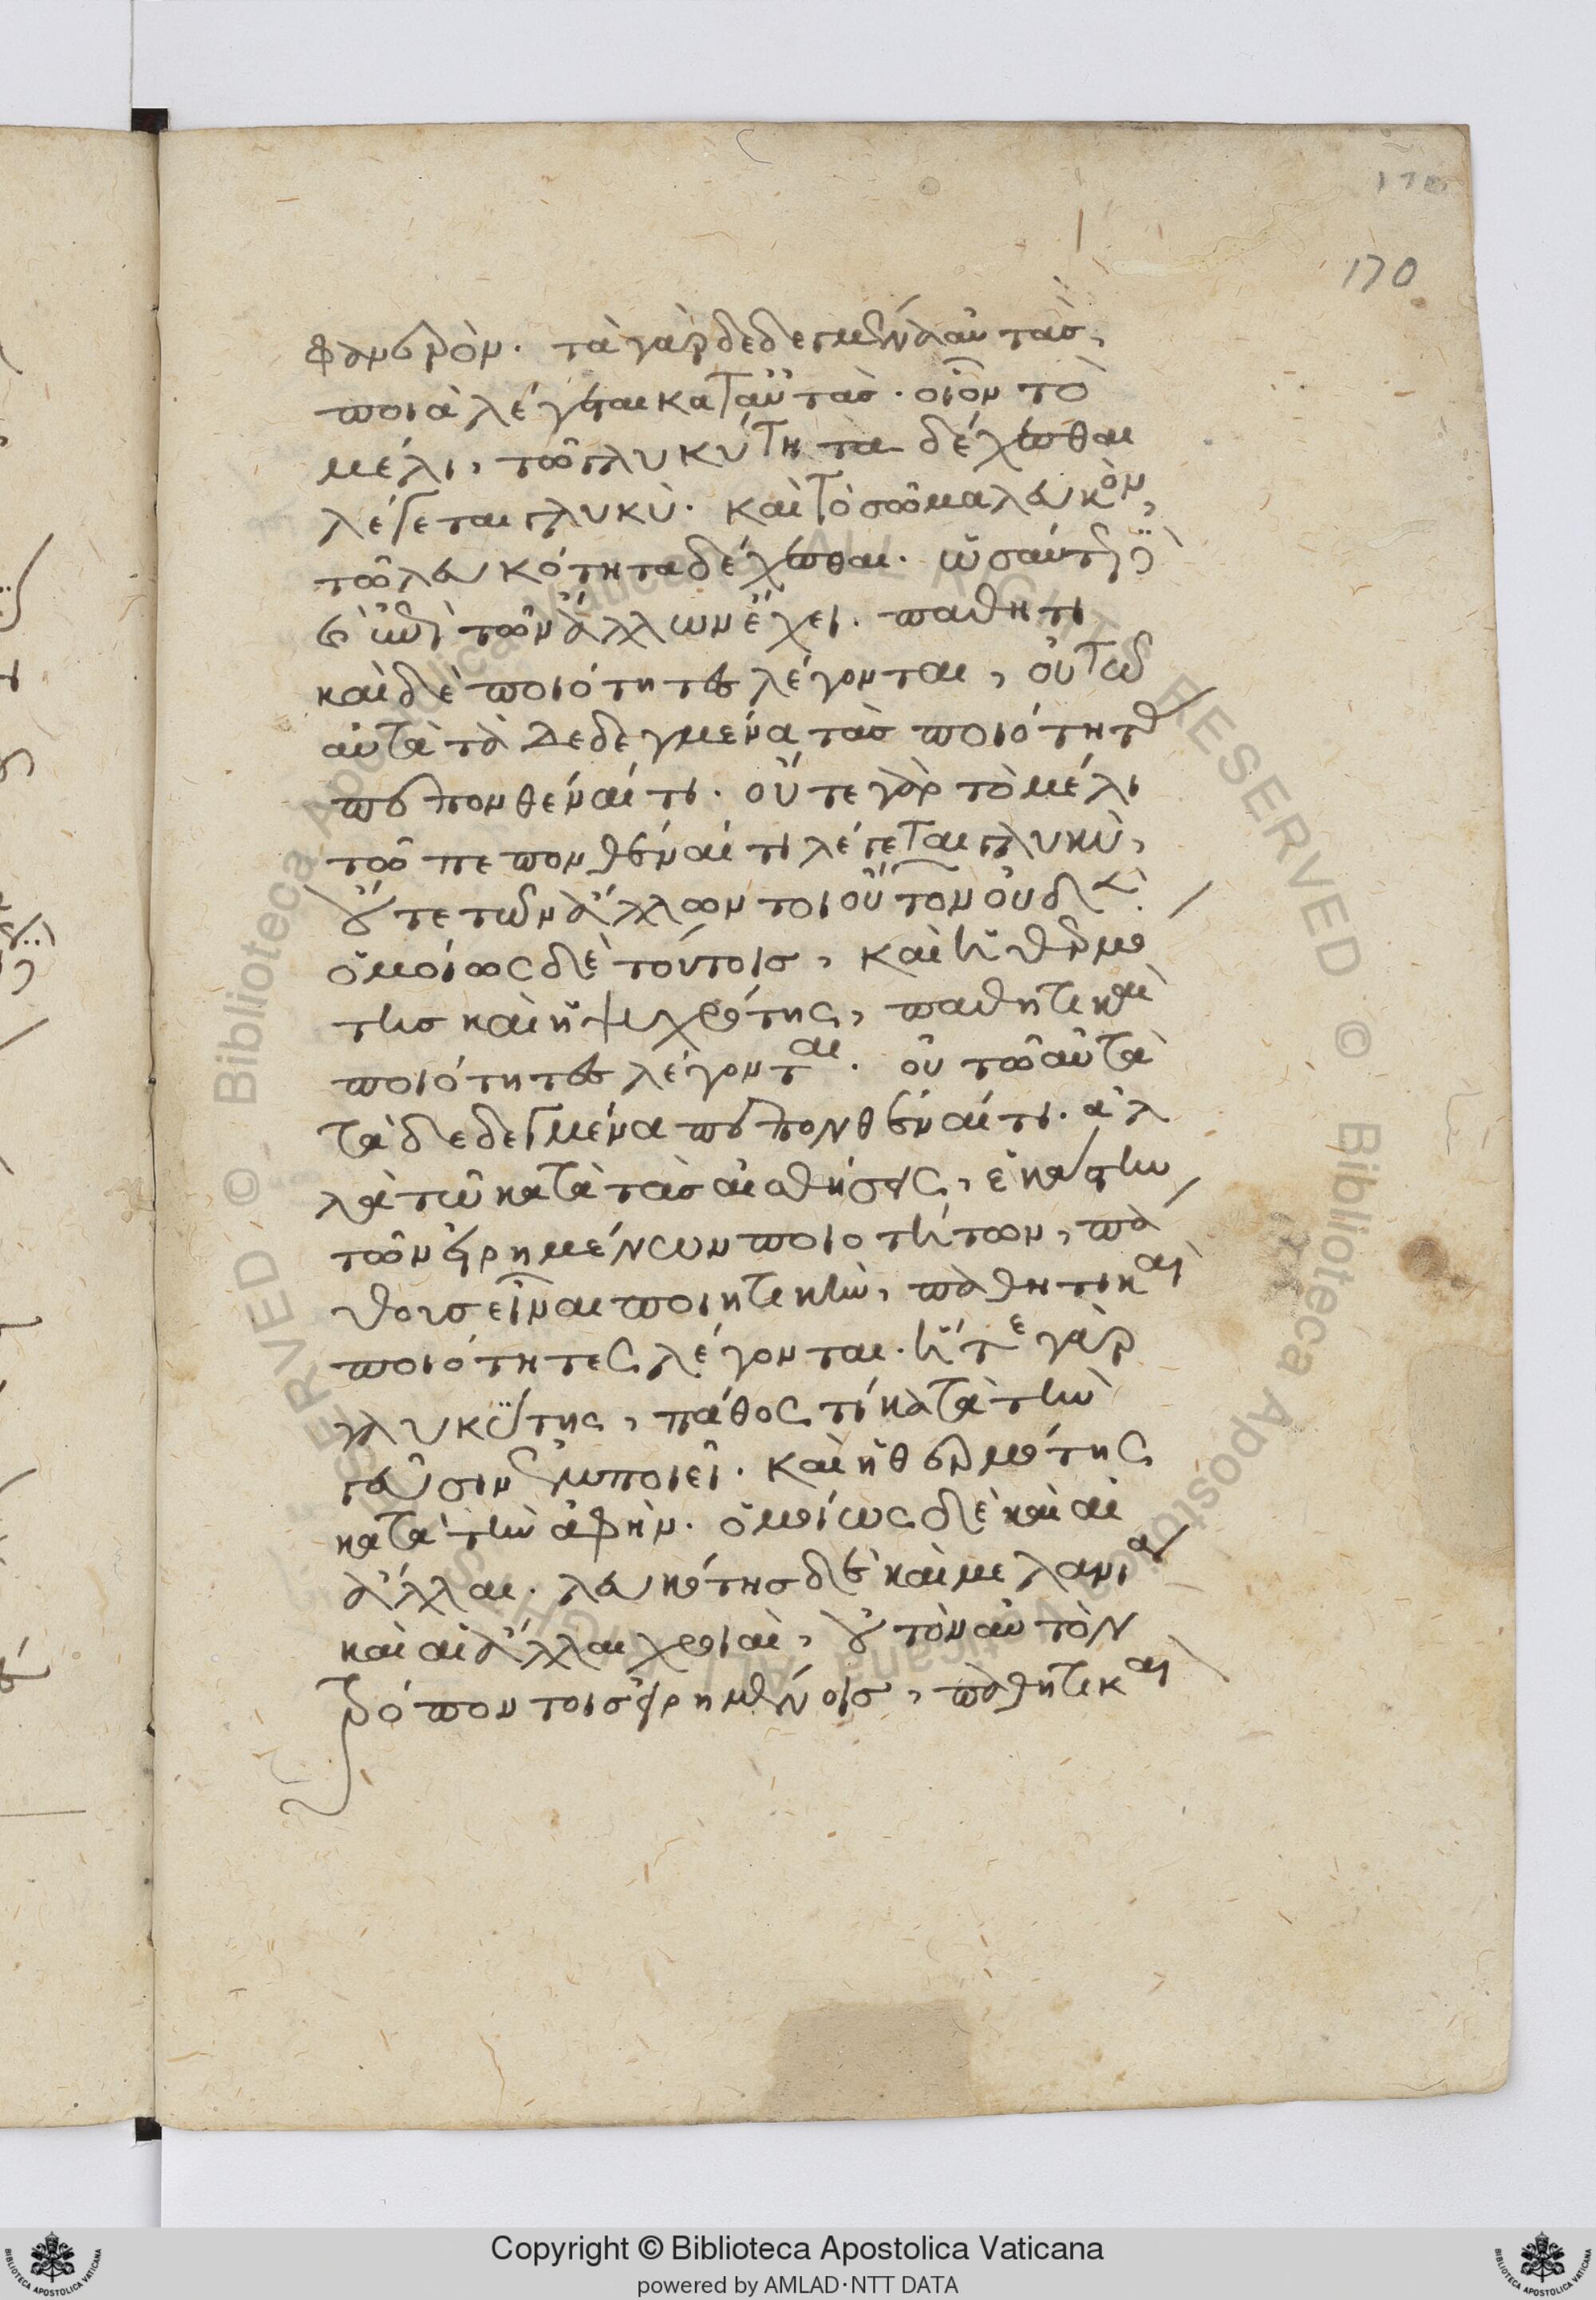 170
170
φανερόν. τὰ γὰρ δεδεγμένα αὐτὰς,
ποιὰ λέγεται κατ' αὐτάς. οἷον τὸ
μέλι, τῶ γλυκύτητα δέχεσθαι
λέγεται γλυκύ. καὶ τὸ σῶμα λευκὸν,
τῶ λευκότητα δέχεσθαι. ὡσαύτως
ἐπὶ τῶν ἄλλων ἔχει. παθητι
καὶ δὲ ποιότητες λέγονται, οὐ τῶ
αὐτὰ τὰ δεδεγμένα τὰς ποιότητας
πεπονθέναι τι. οὔτε γὰρ τὸ μέλι
τῶ πεπονθέναι τι λέγεται γλυκὺ,
οὔτε τῶν ἄλλων τοιοῦτον οὐδέν.
ὁμοίως δὲ τούτοις, καὶ ἡ θερμό
της καὶ ἡ ψυχρότης, παθητικαὶ
ποιότητες λέγονται. οὐ τῶ αὐτὰ
τὰ δεδεγμένα πεπονθέναι τι. ἀλ
λὰ τῶ κατὰ τὰς αἰσθήσεις, ἑκάστην
τῶν εἰρημένων ποιοτήτων, πά
θους εἶναι ποιητικὴν, παθητικαὶ
ποιότητες λέγονται. ἥ τε γὰρ
γλυκύτης, πάθος τι κατὰ τὴν
γεῦσιν ἐμποιεῖ. καὶ ἡ θερμότης
κατὰ τὴν ἁφήν. ὁμοίως δὲ καὶ αἱ
ἄλλαι. λευκότης δὲ καὶ μελανία
καὶ αἱ ἄλλαι χροιαὶ, οὐ τὸν αὐτὸν
τρόπον τοῖς εἰρημένοις, παθητικαὶ
Copyright © Biblioteca Apostolica Vaticana
powered by AMLAD·NTT DATA